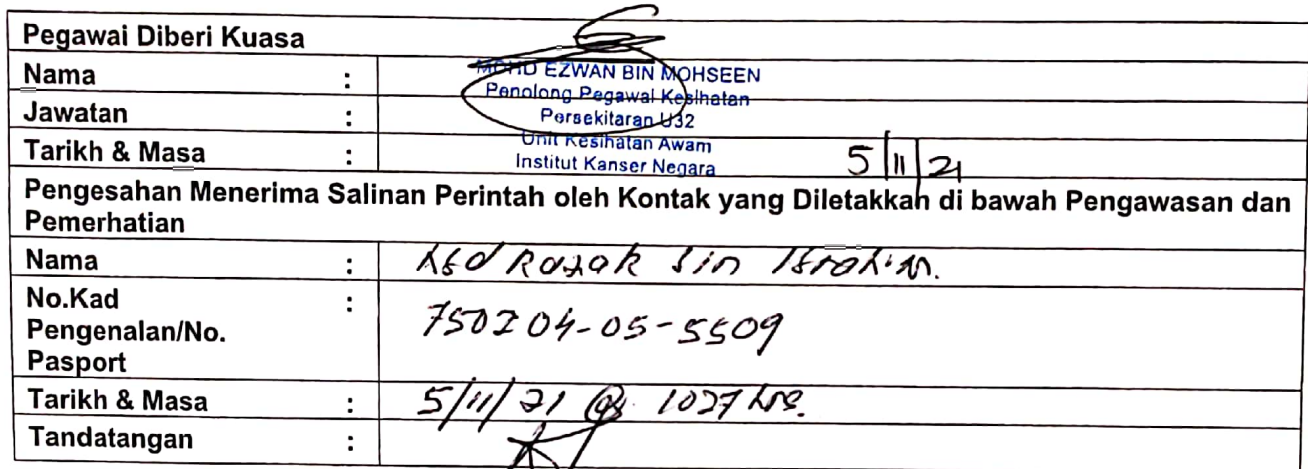 Pegawai Diberi Kuasa
Nama : MOHD EZWAN BIN MOHSEEN
Penolong Pegawai Kesihatan
Jawatan : Persekitaran U32
Unit Kesihatan Awam
Tarikh & Masa : Institut Kanser Negara 5/11/21
Pengesahan Menerima Salinan Perintah oleh Kontak yang Diletakkan di bawah Pengawasan dan
Pemerhatian
Nama : Abd Razak bin Ibrahim.
No.Kad :
Pengenalan/No. 750204-05-5509
Pasport
Tarikh & Masa : 5/11/21 @ 1027 hrs.
Tandatangan :